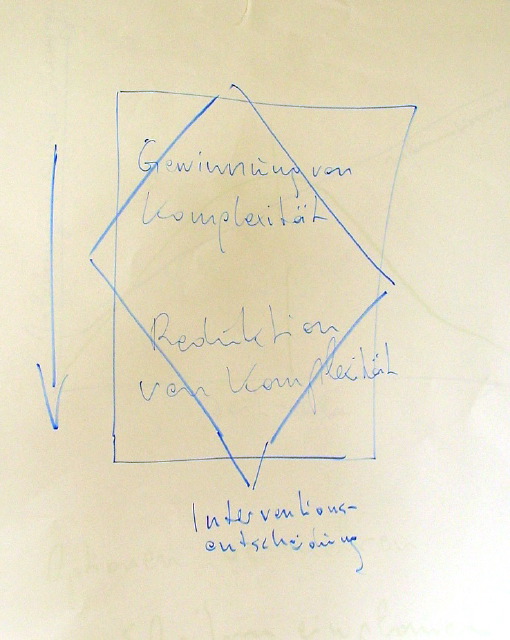 Gewinnung von
Komplexität
Reduktion
von Komplexität
Interventions-
entscheidung